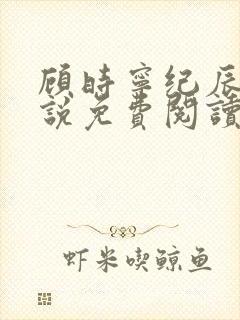 顾时寧纪辰
說免費閱讀
虾米喫鲸鱼